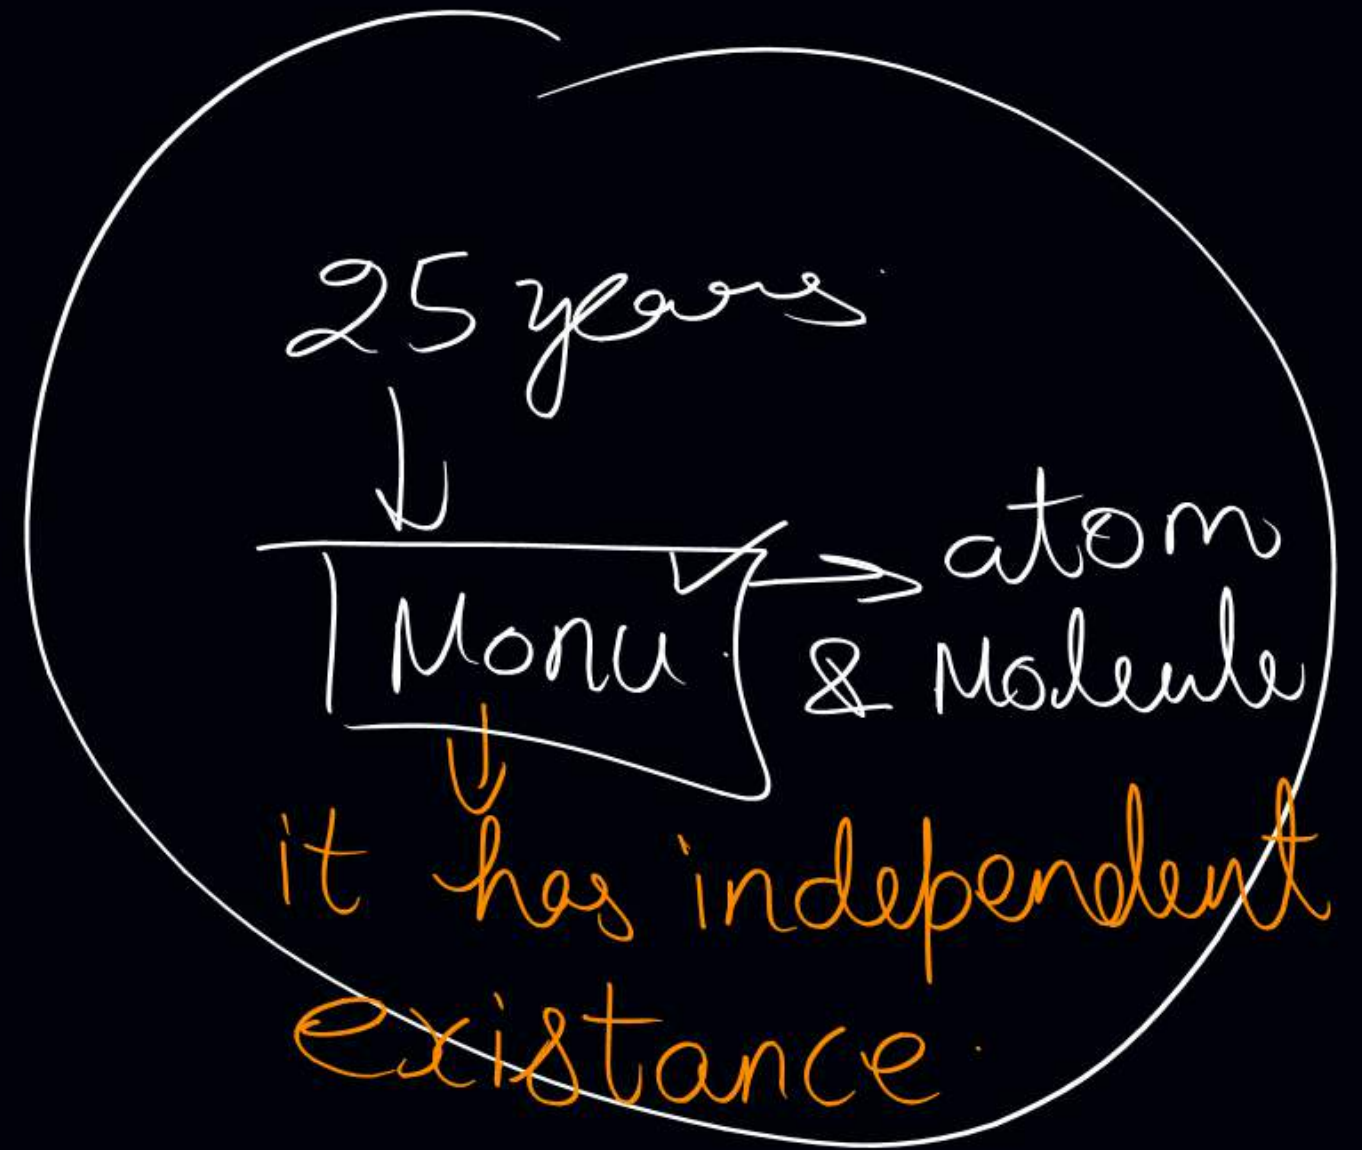 25 years
Monu → atom
& Molecule
it has independent
existance